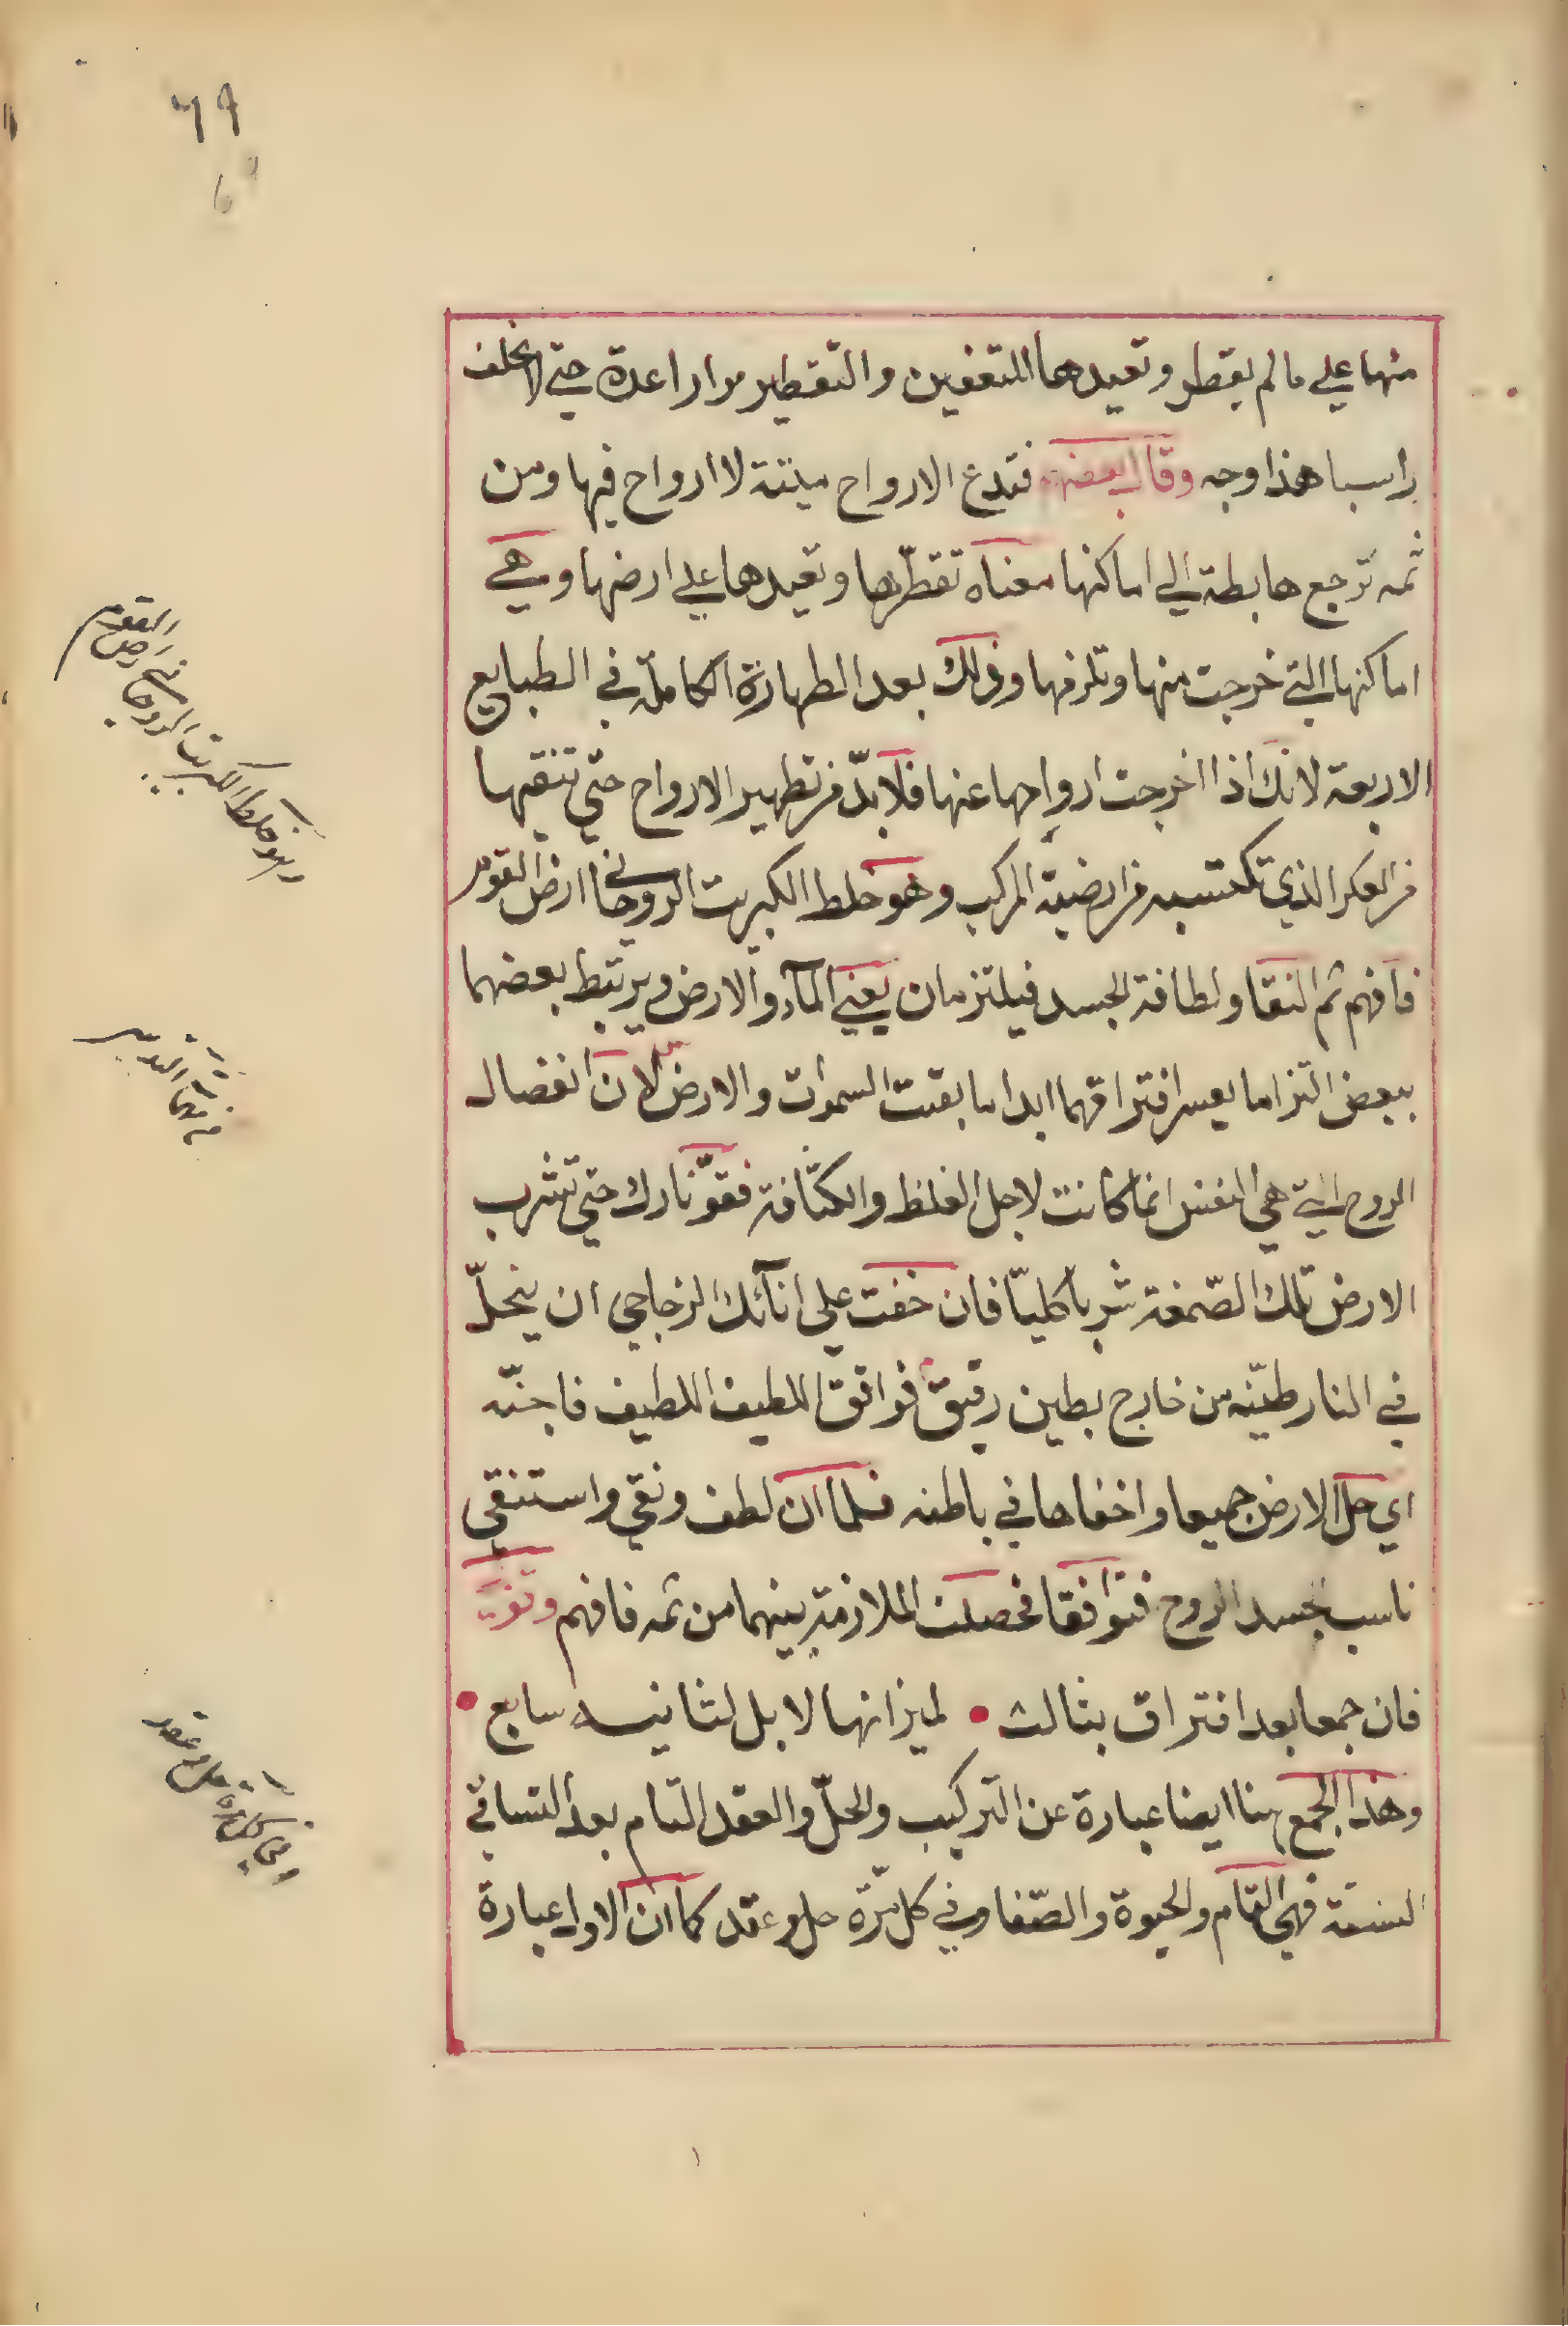 ٦٩
69
منها علي ما لم يقطر وتعيدهما للتعفين والتقطير مرارا عدة حتي لا يخلف
راسبا هذا وجه وقال بعضهم فتدع الارواح ميتة لا ارواح فيها ومن
ثمه ترجع هابطة الي اماكنها معناه تقطرها وتعيدها علي ارضها وهي
اماكنها التي خرجت منها وتلزمها وذلك بعد الطهارة الكاملة في الطبايع
الاربعة لانك اذا اخرجت ارواحها عنها فلا بدّ من تطهير الارواح حتي تنقيها
من العكر الذي تكتسبه من ارضية المركب وهو خلط الكبريت الروحاني ارض القوم
فافهم ثم النقا ولطافة الجسد فيلتزمان يعني المآء والارض ويرتبط بعضهما
ببعض التزاما يعسر افتراقهما ابدا ما بقيت السموات والارض لان انفصال
الروح التي هي النفس انما كانت لاجل الغلظ والكثافة فقوّ نارك حتي تشرب
الارض تلك الصّمغة شربا كليّا فان خفت علي انآئك الزجاجي ان ينحلّ
في النار طيّنه من خارج بطين رقيق فوافق اللطيف اللطيف فاجنّه
اي حل الارض جميعا واخفاها في باطنه فلما ان لطف ونقي واستنقي
ناسب جسد الروح فتوافقا فحصلت الملازمة بينهما من ثمه فافهم وقوله
فان جمعا بعد افتراق بثالث • لميزانها لا بل لثانيه سابع •
وهذا الجمع هنا ايضا عبارة عن التركيب والحلّ والعقد التام بعد التساقي
الستة فهي التمام والحيوة والصّفا وفي كل مرّة حل وعقد كما ان الاول عبارة
وهو خلط الكبريت الروحاني ارض القوم
وفي كل مرة حل وعقد